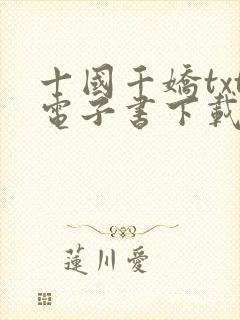 十國千嬌txt
電子書下載
蓮川愛